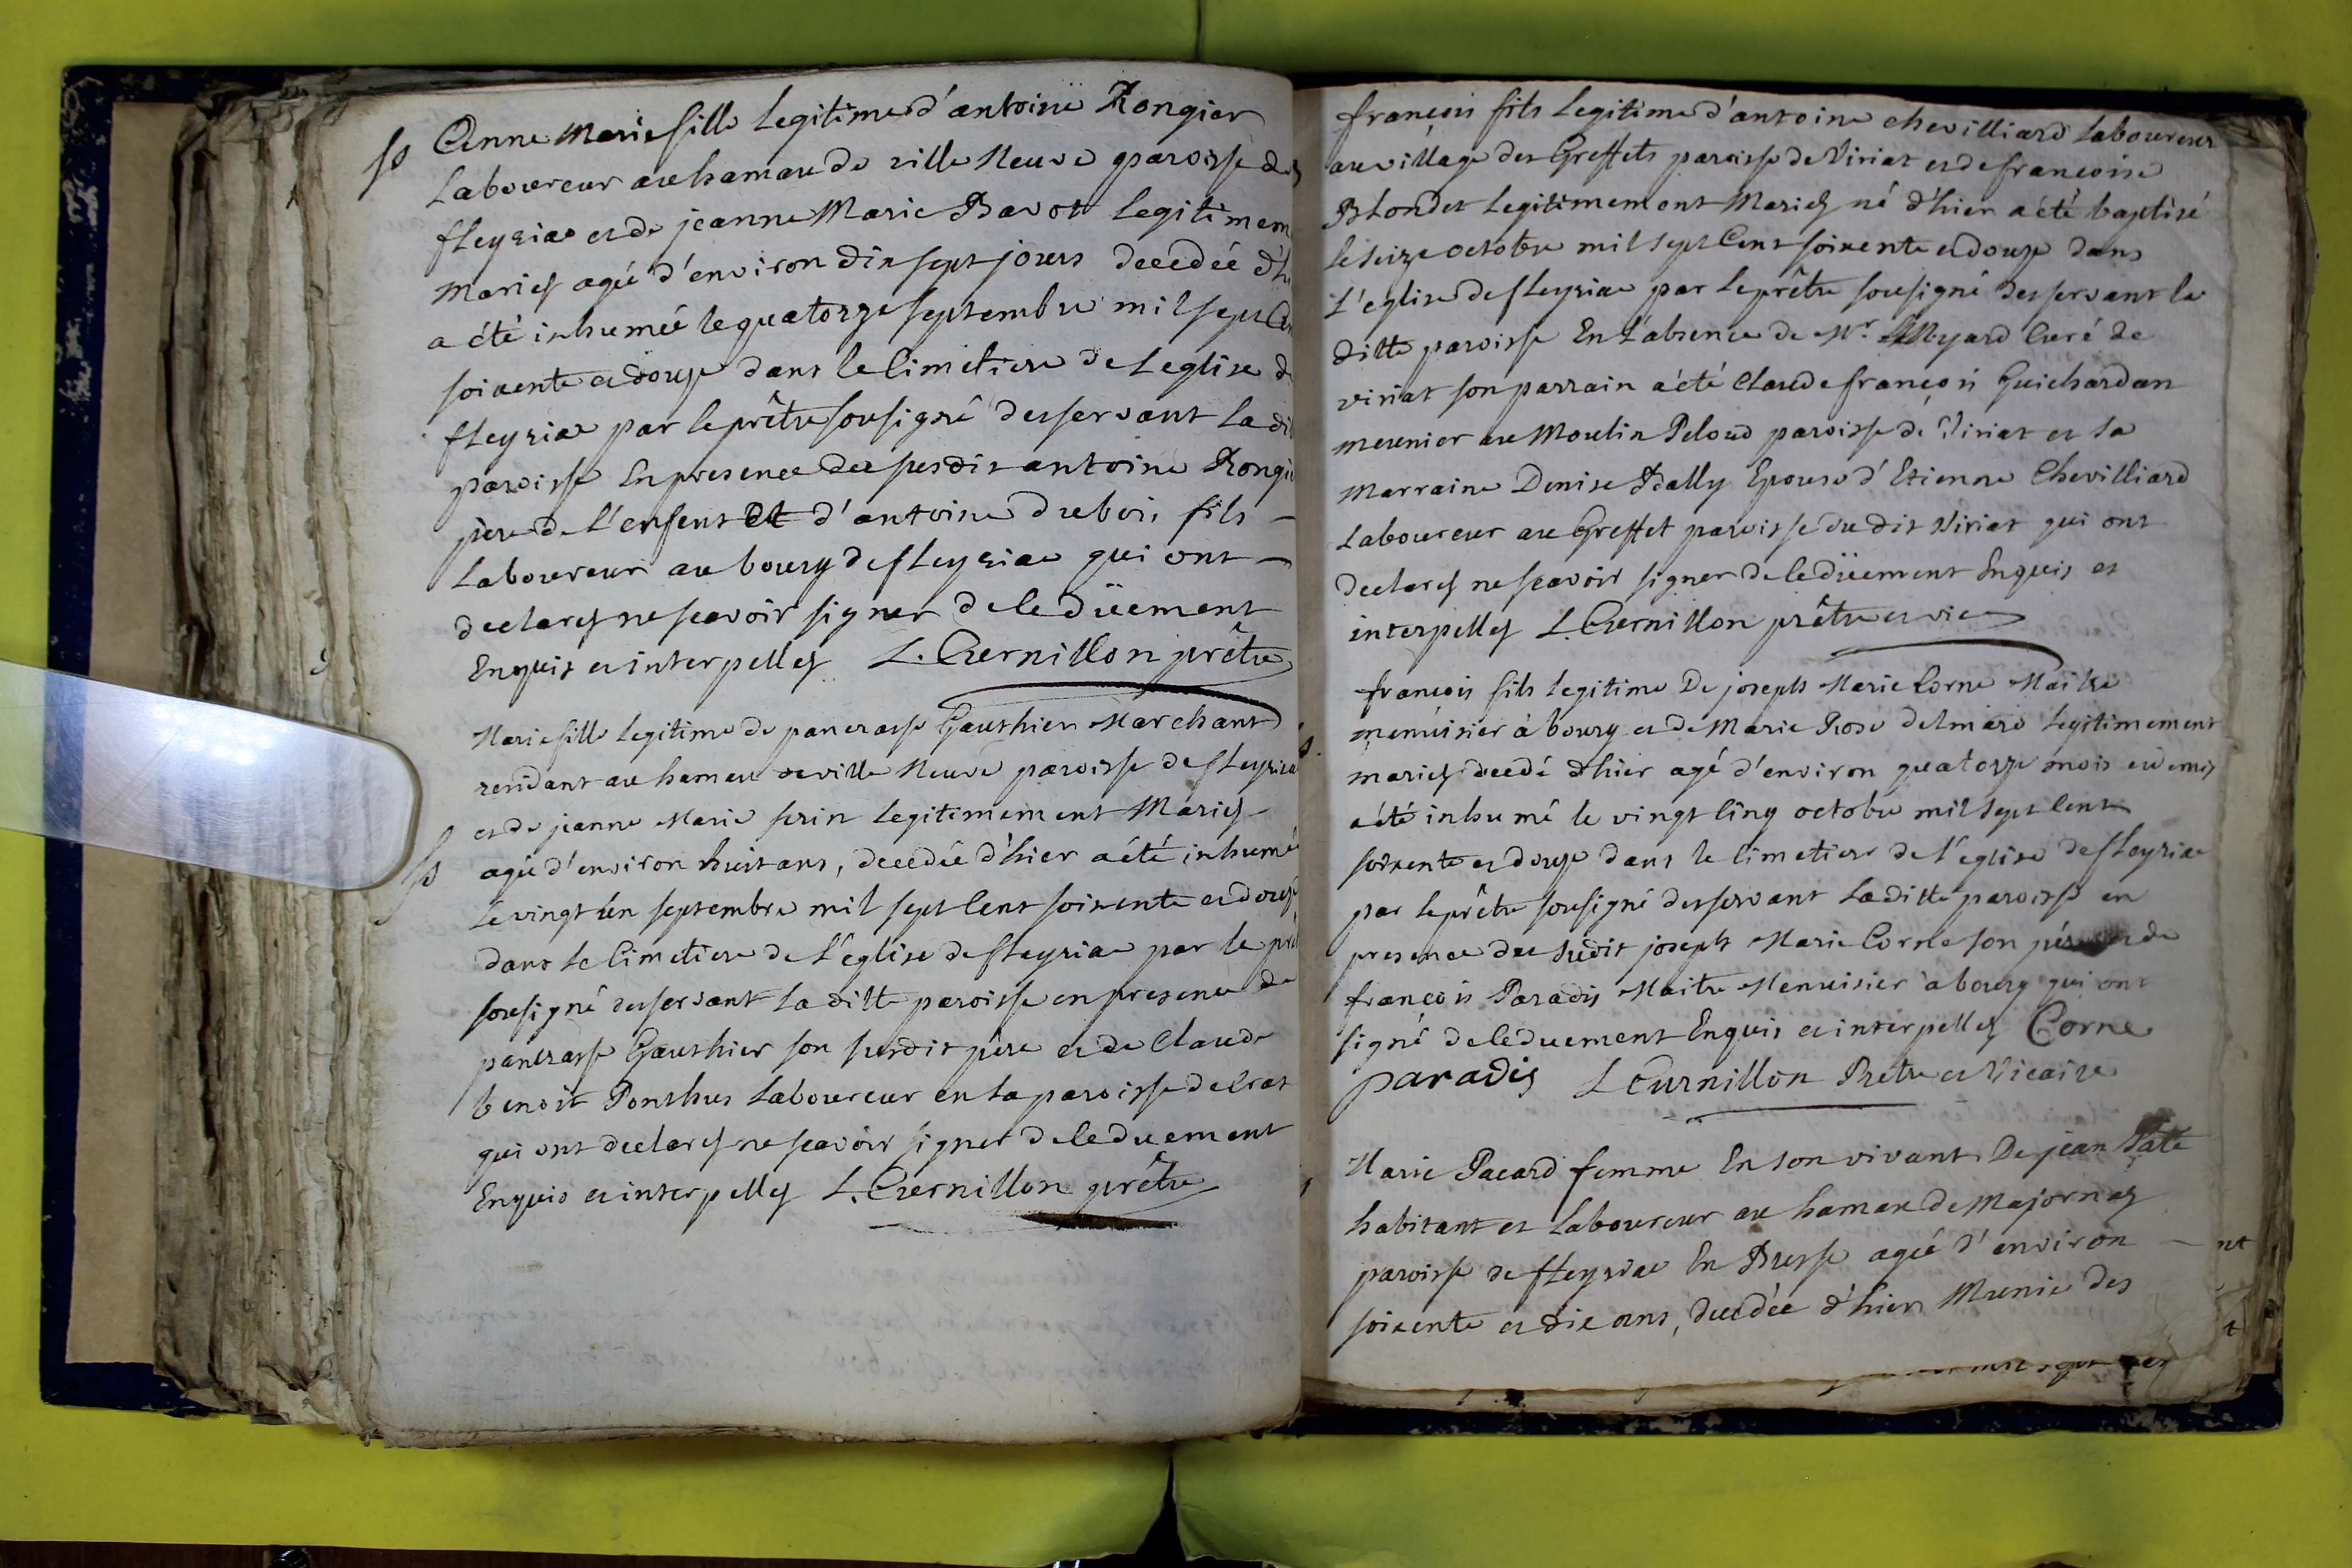 Anne Marie fille Legitime d'antoine Rongier
Laboureur au hamau de ville Neuve paroisse de
fleyriae et de jeanne Marie Bavoz legitimem
Mariés agée d'environ dix sept jours decedée d'hi
a été inhumée le quatorze septembre mil sept Cen
soixente et douze dans le Cimetiere de Leglise d
fleyriae par le prêtre sousigné desservant la di
paroisse En presence du susdit antoine Rongie
père de L'enfent Et d'antoine dubois fils –
Laboureur au bourg de fleyriae qui ont –
declarés ne scavoir signer de ce düement
Enquis et interpellés L. Curnillon prêtre
Marie fille legitime de pancrasse Gauthier Marchant
residant au hameu de ville Neuve paroisse de fleyriae
et de jeanne Marie serin legitimement Mariés
agée d'environ huit ans, decedée d'hier a été inhumé
Le vingt un septembre mil sept Cent soixente et douze
dans le Cimetiere de L'église de fleyriae par le prê
sousigné desservant la ditte paroisse en presence de
pancrasse Gauthier son susdit père et de Claude
benoit Ponthus Laboureur en la paroisse de Cras
qui ont declarés ne scavoir signer de ce duement
Enquis et interpellés L. Curnillon prêtre
françois fils Legitime d'antoine chevilliard Laboureur
au village des Greffets paroisse de Viriat et de françoise
Blondet Legitimement Mariés né d'hier a été baptisé
le seize octobre mil sept Cent soixente et douze dans
L'eglise de fleyriae par le prêtre sousigné desservant la
ditte paroisse En L'absence de Mr. Myard Curé de
viriat son parrain a été Claude françois Guichardan
meunier au Moulin Peloud paroisse de Viriat et la
Marraine Denise Bally Epouse d'Etienne Chevilliard
Laboureur au Greffet paroisse du dit Viriat qui ont
declarés ne scavoir signer de ce düement Enquis et
interpellés L. Curnillon prêtre et vic
françois fils legitime De joseph Marie Corne Maitre
menuisier à bourg et de Marie Rose delmare legitimement
mariés decedé d'hier agé d'environ quatorze mois et demis
a été inhumé le vingt Cinq octobre mil sept Cent
soixente et douze dans le Cimetiere de L'eglise de fleyriae
par le prêtre sousigné desservant La ditte paroisse en
presence du sudit joseph Marie Corne son père et de
françois Paradis Maitre Menuisier à bourg qui ont
signé de ce duement Enquis et interpellés Corne
paradis L Curnillon Prêtre et Vicaire
Marie Pacard femme En son vivant De jean Paté
habitant et Laboureur au hamau de Majornas
paroisse de fleyriae En Bresse agée d'environ –
soixente et dix ans, decedée d'hier Munie des
nt
t